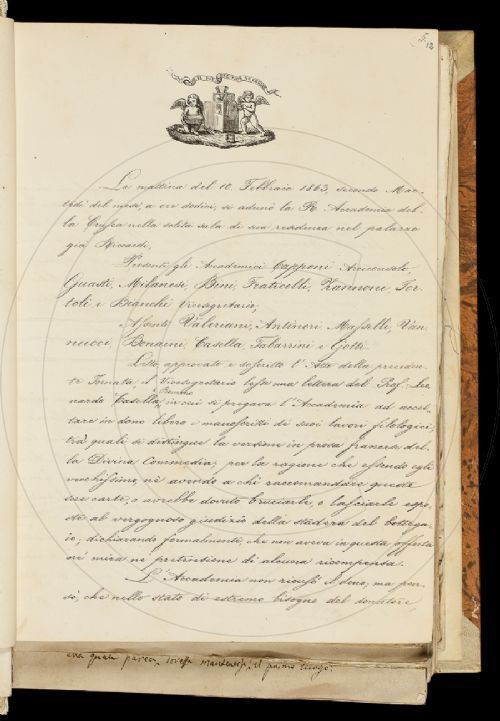 12
La mattina del 10. Febbraio 1863, secondo Mar-
tedì del mese, a ore dodici, si adunò la R. Accademia del-
la Crusca nella solita sala di sua residenza nel palazzo
già Riccardi.
Presenti gli Accademici Capponi Arciconsolo,
Guasti, Milanesi, Bini, Fraticelli, Zannoni, Tor-
toli e Bianchi Vicesegretario;
Assenti Valeriani, Antinori, Maselli, Van-
nucci, Bonaini, Casella, Tabarrini e Gotti.
Letto approvato e soscritto l'Atto della preceden-
te Tornata, il Vicesegretario lesse una lettera del Prof. Leo-
nardo Casella, in cui si pregava l'Accademia ad accet-
tare in dono libri e manoscritti di suoi lavori filologici,
tra' quali si distingue la versione in prosa francese del-
la Divina Commedia; per la ragione che essendo egli
vecchissimo, nè avendo a chi raccomandare queste
sue carte, o avrebbe dovuto bruciarle, o lasciarle espo-
ste al vergognoso giudizio della stadera del bottega-
io; dichiarando formalmente, che non aveva in questa offerta
nè mira nè pretensione di alcuna ricompensa.
L'Accademia non ricusò il dono; ma pen-
sò, che nello stato di estremo bisogno del donatore,